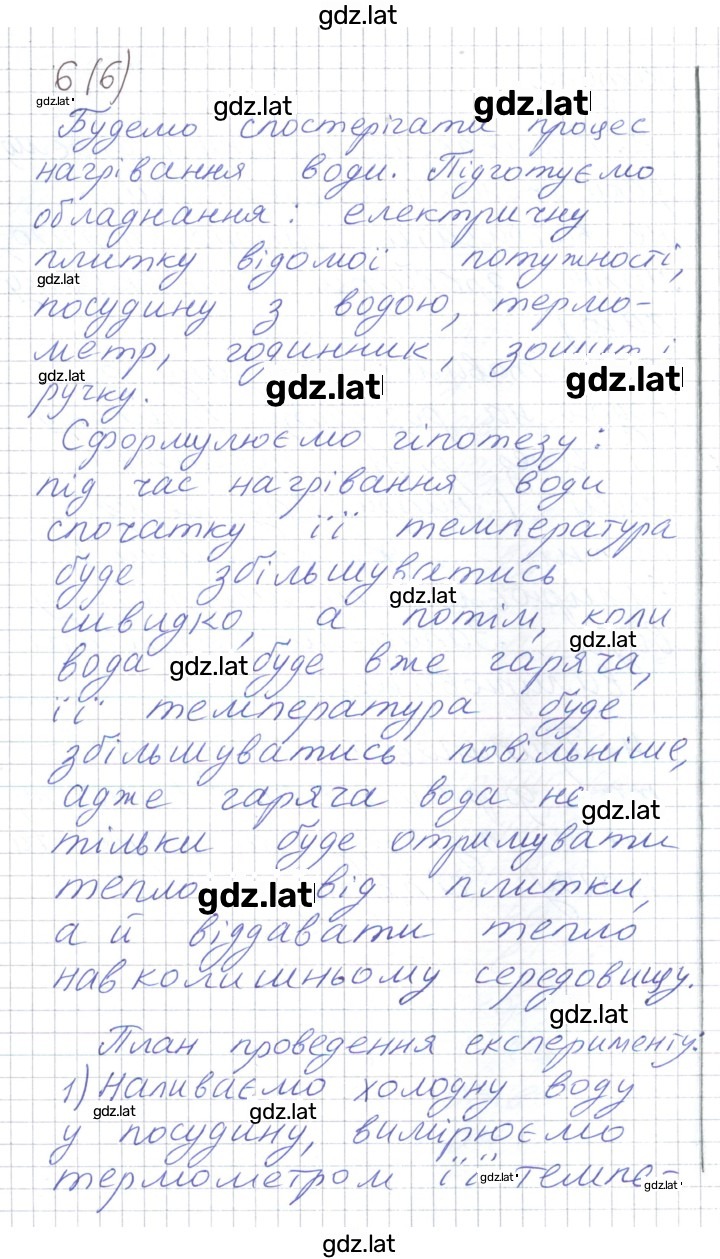 gdz.lat
6 (6)
gdz.lat gdz.lat gdz.lat
Будемо спостерігати процес
нагрівання води. Підготуємо
обладнання: електричну
плитку відомої потужності,
gdz.lat
посудину з водою, термо-
метр, годинник, зошит і
gdz.lat gdz.lat gdz.lat
ручку.
Сформулюємо гіпотезу:
під час нагрівання води
спочатку її температура
буде збільшуватись
gdz.lat
швидко, а потім, коли
gdz.lat
вода буде вже гаряча,
gdz.lat
її температура буде
збільшуватись повільніше,
адже гаряча вода не
gdz.lat
тільки буде отримувати
тепло від плитки,
gdz.lat
а й віддавати тепло
навколишньому середовищу.
gdz.lat
План проведення експерименту:
1) Наливаємо холодну воду
gdz.lat gdz.lat
у посудину, вимірюємо
термометром її темпе-
gdz.lat gdz.lat
gdz.lat